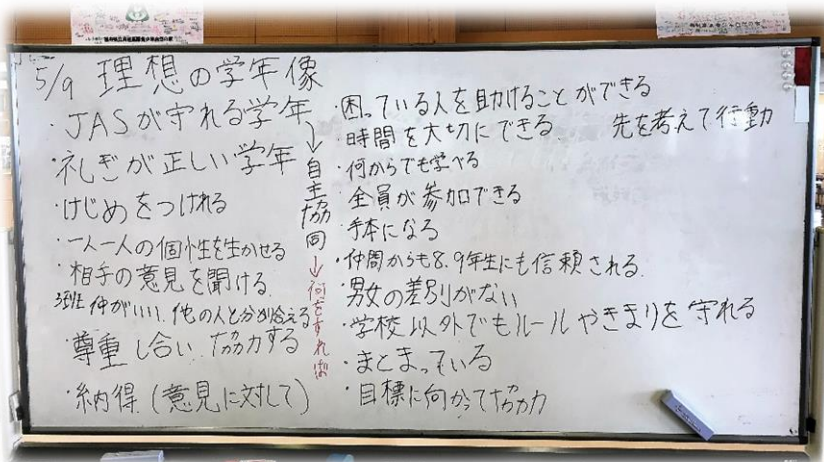 5/9 理想の学年像
・JASが守れる学年
・礼ぎが正しい学年
・けじめをつけれる
・一人一人の個性を生かせる
・相手の意見を聞ける
3班 仲がいい、他の人と分かり合える
・尊重し合い協力する
・納得(意見に対して)
→自主協同→何をすれば
・困っている人を助けることができる
・時間を大切にできる 先を考えて行動
・何からでも学べる
・全員が参加できる
・手本になる
・仲間からも8、9年生にも信頼される
・男女の差別がない
・学校以外でもルールやきまりを守れる
・まとまっている
・目標に向かって協力